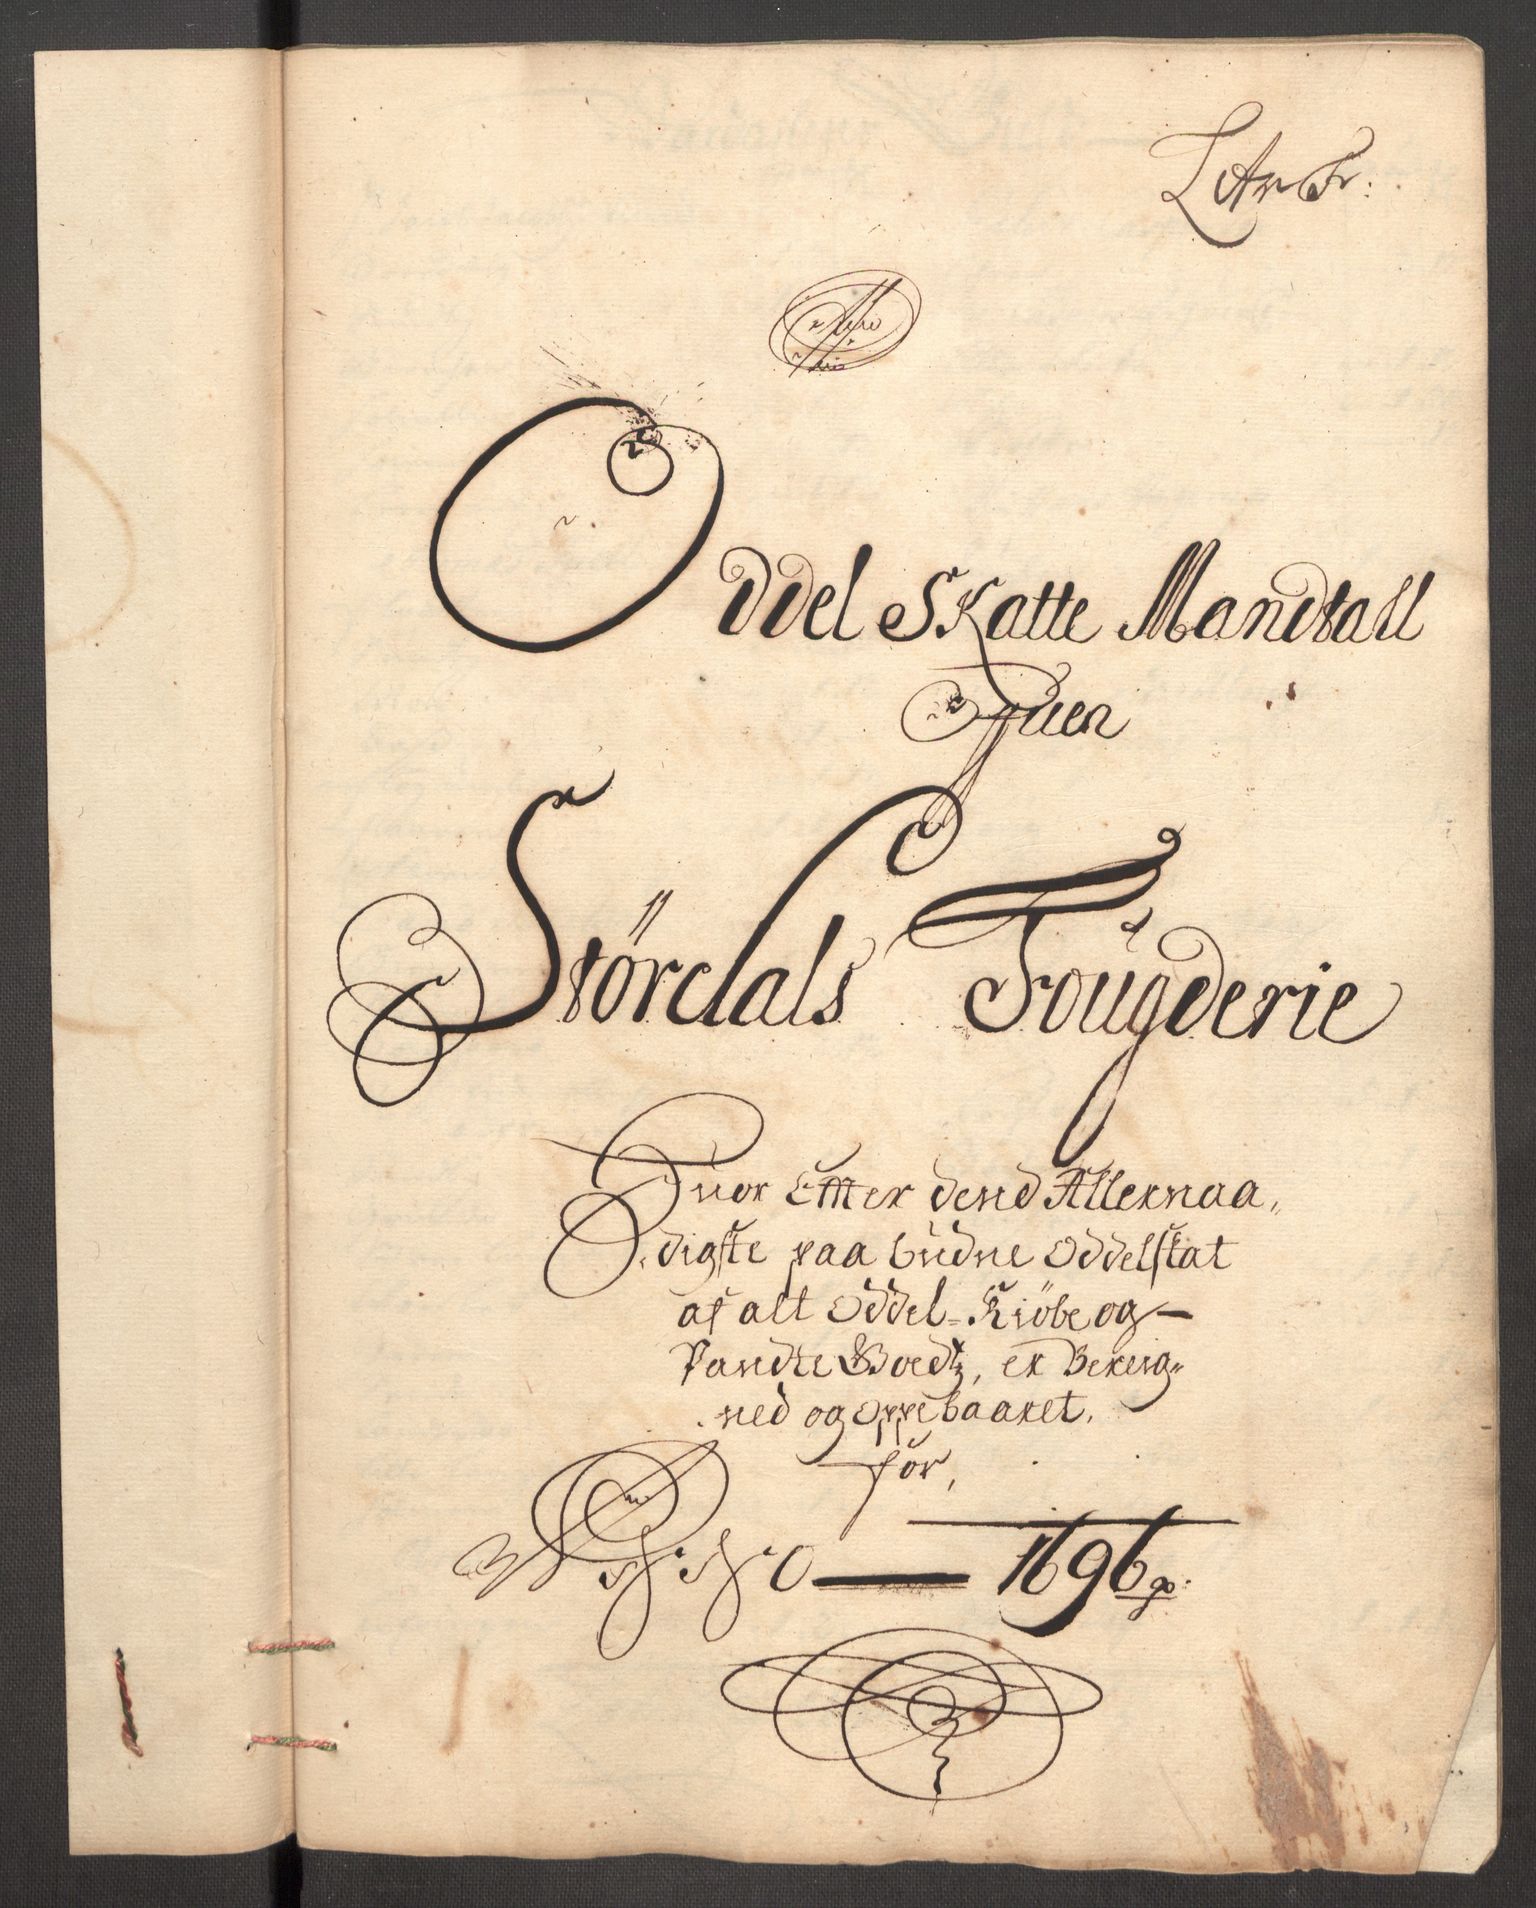 Litr F:
Oddel Skatte Mandtall
Ofuer
Størdals Fougderie
Huor Effter dend Allernaa,,
digste paa budne Oddelskat
af alt Oddel- Kiöbe og
Pandte Goedtz, er Bereig,,
ned og oppebaaret.
for,
1696